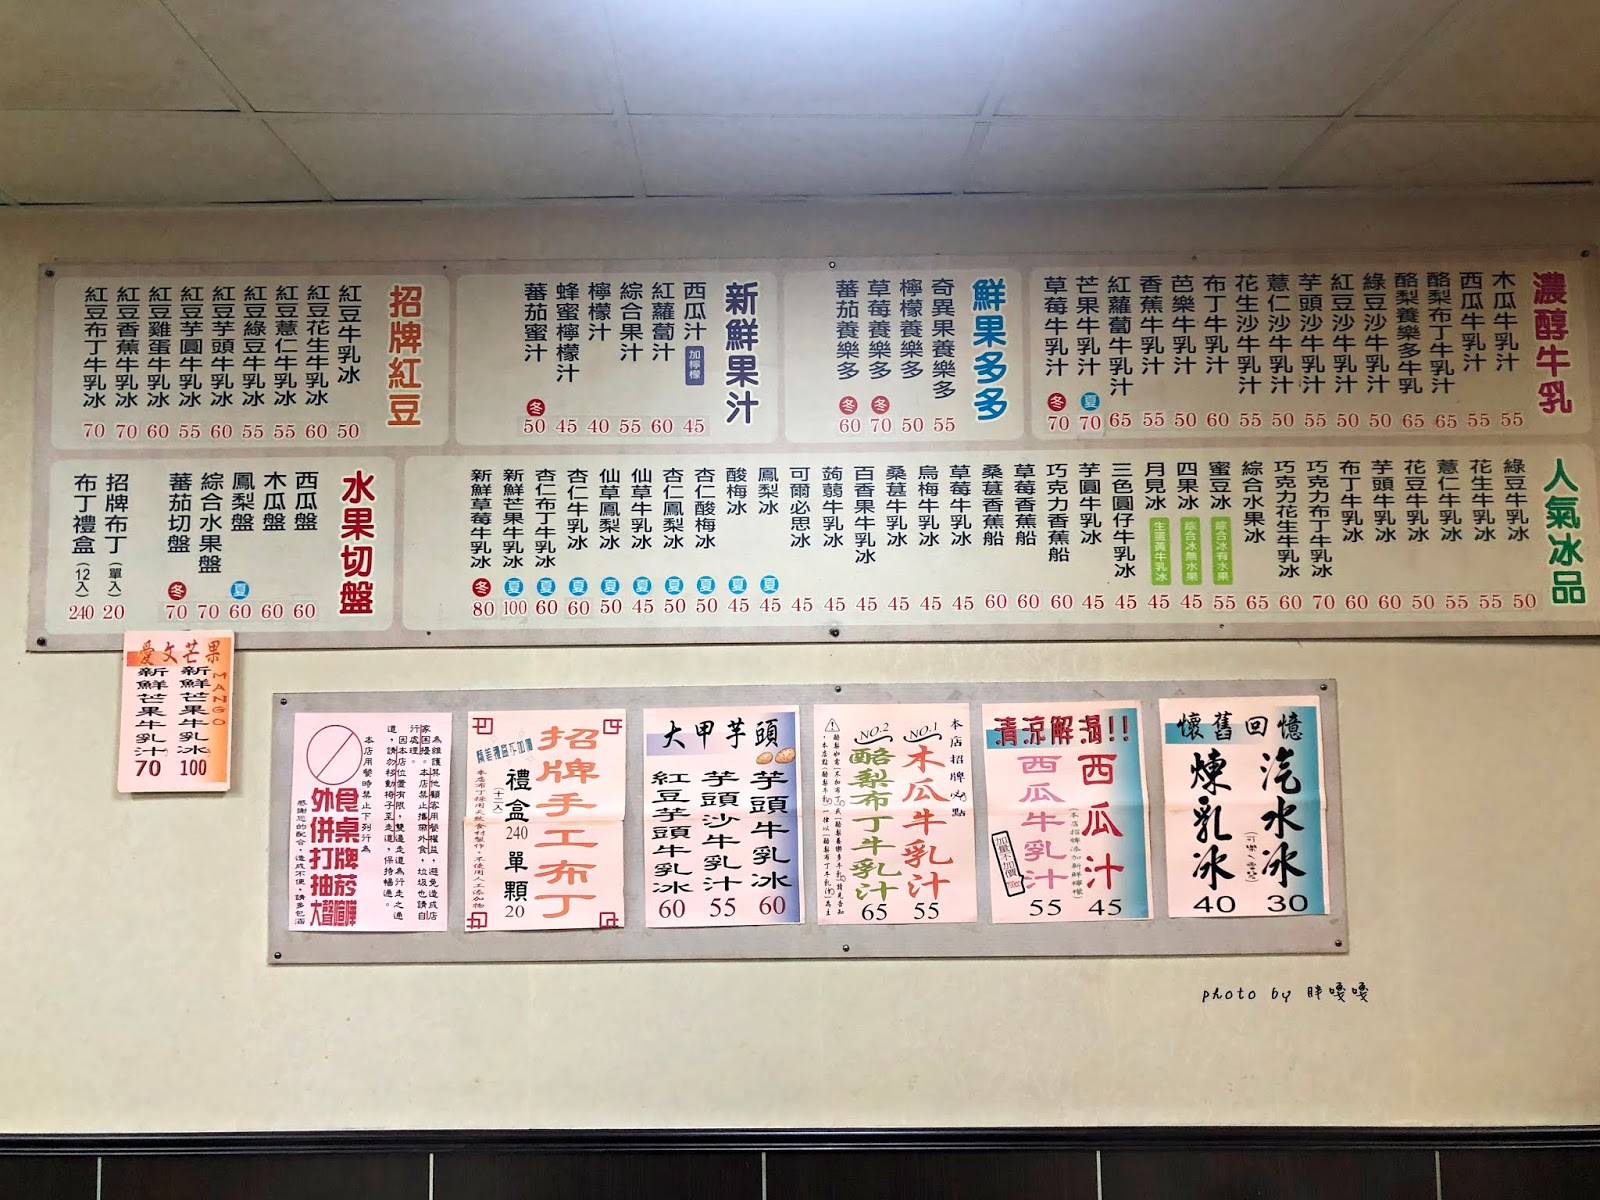 濃醇牛乳
木瓜牛乳汁 55
西瓜牛乳汁 55
酪梨布丁牛乳汁 65
酪梨養樂多牛乳 65
綠豆沙牛乳汁 50
紅豆沙牛乳汁 50
芋頭沙牛乳汁 55
薏仁沙牛乳汁 50
花生沙牛乳汁 55
布丁牛乳汁 60
芭樂牛乳汁 50
香蕉牛乳汁 55
紅蘿蔔牛乳汁 65
芒果牛乳汁 夏 70
草莓牛乳汁 冬 70
鮮果多多
奇異果養樂多 55
檸檬養樂多 50
草莓養樂多 冬 70
蕃茄養樂多 冬 60
新鮮果汁
西瓜汁 加檸檬 45
紅蘿蔔汁 60
綜合果汁 55
檸檬汁 40
蜂蜜檸檬汁 45
蕃茄蜜汁 冬 50
招牌紅豆
紅豆牛乳冰 50
紅豆花生牛乳冰 60
紅豆薏仁牛乳冰 55
紅豆綠豆牛乳冰 55
紅豆芋頭牛乳冰 60
紅豆芋圓牛乳冰 55
紅豆雞蛋牛乳冰 60
紅豆香蕉牛乳冰 70
紅豆布丁牛乳冰 70
人氣冰品
綠豆牛乳冰 50
花生牛乳冰 55
薏仁牛乳冰 55
花豆牛乳冰 50
芋頭牛乳冰 60
布丁牛乳冰 60
巧克力布丁牛乳冰 70
巧克力花生牛乳冰 60
綜合水果冰 65
蜜豆冰 綜合冰有水果 55
四果冰 綜合冰無水果 45
月見冰 生蛋黃牛乳冰 45
三色圓仔牛乳冰 45
芋圓牛乳冰 45
巧克力香蕉船 60
草莓香蕉船 60
桑葚香蕉船 60
草莓牛乳冰 45
烏梅牛乳冰 45
桑葚牛乳冰 45
百香果牛乳冰 45
蒟蒻牛乳冰 45
可爾必思冰 45
鳳梨冰 夏 45
酸梅冰 夏 45
杏仁酸梅冰 夏 50
杏仁鳳梨冰 夏 50
仙草牛乳冰 夏 45
仙草鳳梨冰 夏 50
杏仁牛乳冰 夏 60
杏仁布丁牛乳冰 夏 60
新鮮芒果牛乳冰 夏 100
新鮮草莓牛乳冰 冬 80
水果切盤
西瓜盤 60
木瓜盤 60
鳳梨盤 夏 60
綜合水果盤 70
蕃茄切盤 冬 70
招牌布丁(單入) 20
布丁禮盒(12入) 240
愛文芒果
MANGO
新鮮芒果牛乳冰 100
新鮮芒果牛乳汁 70
懷舊回憶
汽水冰 30
煉乳冰 40
清涼解渴!!
西瓜汁 45
(本店招牌添加新鮮檸檬)
西瓜牛乳汁 55
加量不加價
本店招牌必點
NO.1
木瓜牛乳汁 55
NO.2
酪梨布丁牛乳汁 65
大甲芋頭
芋頭牛乳冰 60
芋頭沙牛乳汁 55
紅豆芋頭牛乳冰 60
招牌手工布丁
精美禮盒不加價
禮盒(十二入) 240
單顆 20
本店布丁採用天然食材製作,不使用人工添加物
為維護其他顧客用餐權益,避免造成店
家困擾。本店禁止攜帶外食,垃圾也請自
行處理。
因本店位置有限,雙邊走道為行走之通
道,請勿移動椅子至走道,保持暢通。
本店用餐時禁止下列行為
外食
併桌
打牌
抽菸
大聲喧嘩
感謝您的配合,造成不便,請多包涵
photo by 胖嘎嘎